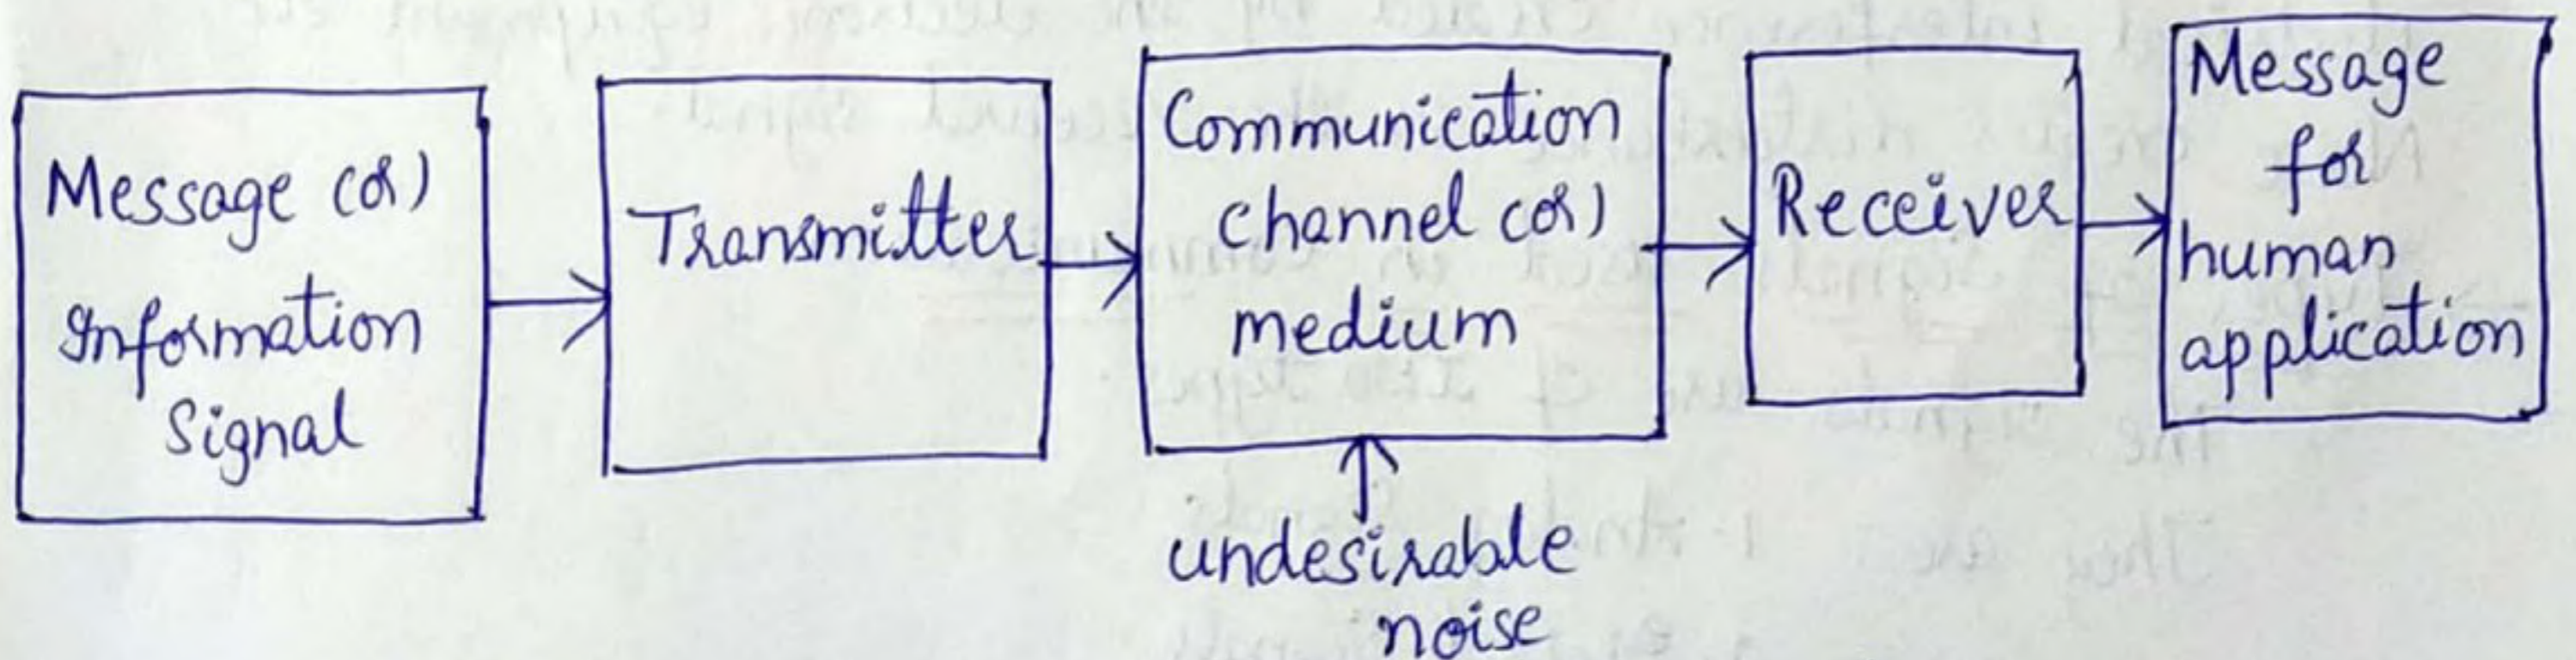 Message (or)
Information
Signal
Transmitter
Communication
channel (or)
medium
Receiver
Message
for
human
application
undesirable
noise